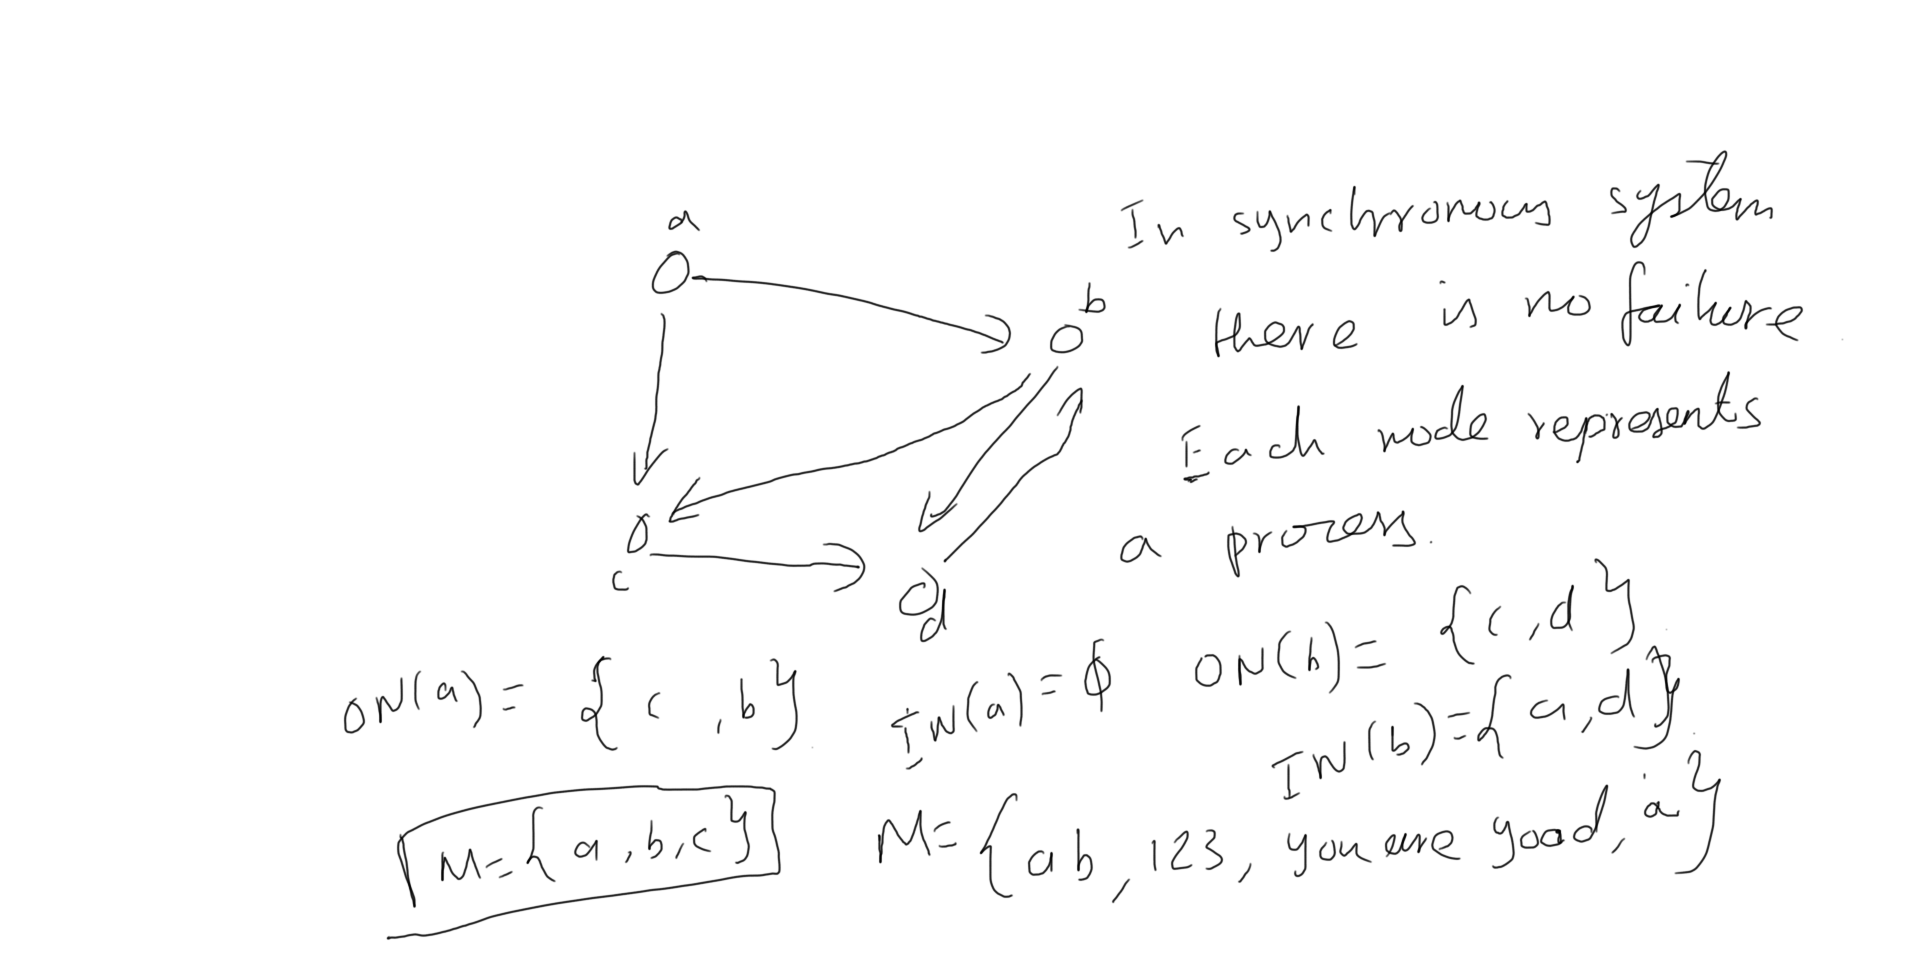 a
b
c
d
In synchronous system
there is no failure
Each node represents
a process.
ON(a) = { c , b }
IN(a) = ϕ
ON(b) = { c , d }
IN(b) = { a, d }
M = { a , b, c }
M = { ab , 123 , you are good, a }